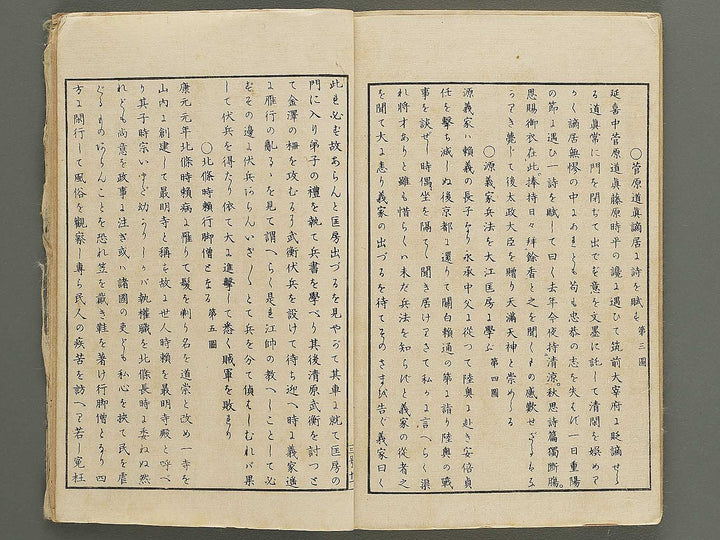 ○菅原道眞謫居に詩を賦す 第三圖
延喜中菅原道眞藤原時平の讒に遇ひて筑前大宰府に貶謫せら
る道眞常に門を閉ぢて出でず意を文墨に託して清閑を娯めり
かく謫居無慘の中にあれども尚も忠恭の志を失はず一日重陽
の節に遇ひ一詩を賦して曰く去年今夜持清涼秋思詩篇獨斷膓
恩賜御衣在此捧持日々拜餘香と之を聞くもの感歎せざるなし
うせき薨じて後太政大臣を贈り天滿天神と崇めらる
○源義家兵法を大江匡房に學ぶ 第四圖
源義家ハ賴義の長子なり永承中父に從つて陸奥に赴き安倍貞
任を撃ち滅しぬ後京都に還りて關白賴通の第に詣り陸奥の戰
事を談ぜし時偶坐を隔てし聞き居けるさて私かに言へらく渠
れ將才ありと雖も惜らくハ未だ兵法を知らずと義家の從者之
を聞て大に恚り義家の出づるを待てそのさまを告ぐ義家曰く
此れ必ず故あらんと匡房出づるを見やつて其車に就て匡房の
門に入り弟子の禮を執て兵書を學べり其後清原武衡を討つと
て金澤の柵を攻むるに武衡伏兵を設けて待ち迎へ時に義家進
に雁行の亂るゝを見て謂へらく是れ江帥の教へしことして必
ずその邊に伏兵あらんいざとて兵を分て偵はしむれバ果
して伏兵を得たり依て大に進撃して悉く賊軍を敗れり
○北條時賴行脚僧となる 第五圖
康元元年北條時賴病に雁りて髮を剃り名を道崇と改め一寺を
山内に創建して最明寺と稱す故に世人時賴を最明寺殿と呼べ
り其子時宗いまだ幼かりしかバ執權職を北條長時に委ねぬ然
れども尚意を政事に注ぎ或ハ諸國の吏ども私心を挾て民を虐
ぐるものあらんことを恐れ笠を戴き鞋を著け行脚僧となり四
方に閒行して風俗を觀察し專ら民人の疾苦を訪へり若し寃枉